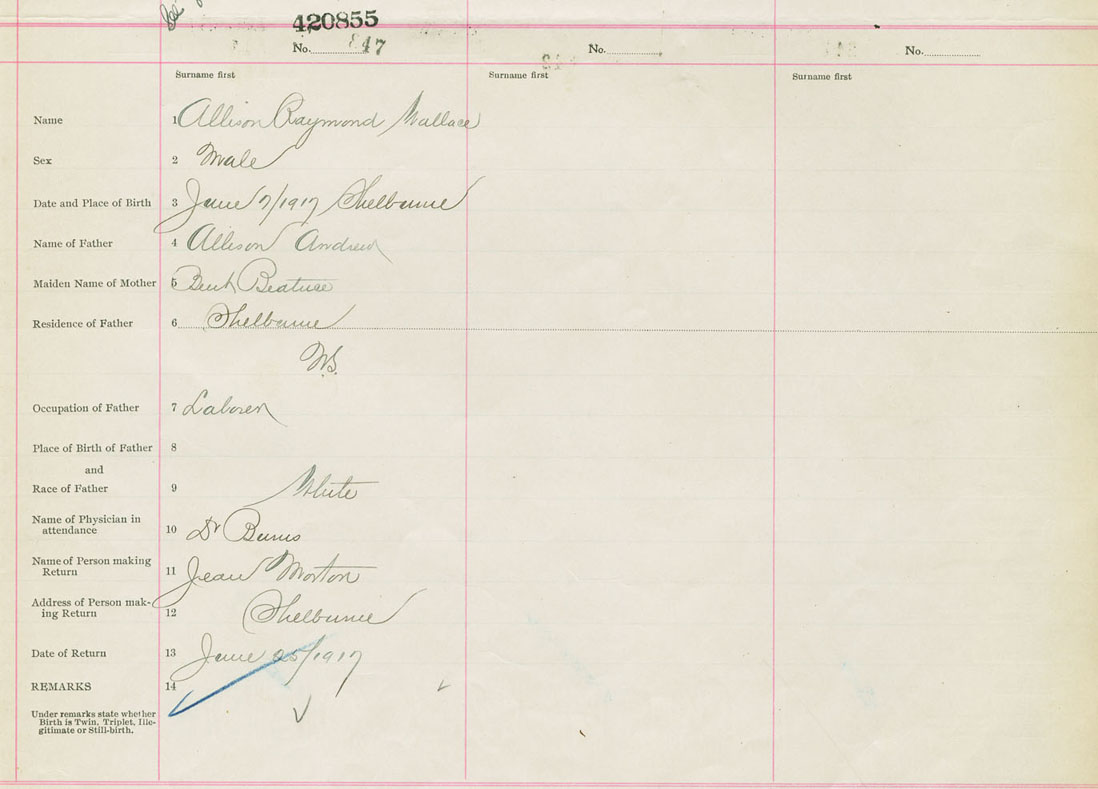 See
420855
No. 847
No.
No.
Surname first
Surname first
Surname first
Name 1 Allison Raymond Wallace
Sex 2 Male
Date and Place of Birth 3 June 7/1917 Shelburne
Name of Father 4 Allison Andrew
Maiden Name of Mother 5 Bent Beatrice
Residence of Father 6 Shelburne
N.S.
Occupation of Father 7 Laborer
Place of Birth of Father 8
and
Race of Father 9 White
Name of Physician in
attendance 10 Dr Burns
Name of Person making
Return 11 Jean Morton
Address of Person mak-
ing Return 12 Shelburne
Date of Return 13 June 25/1917
REMARKS 14
Under remarks state whether
Birth is Twin, Triplet, Ille-
gitimate or Still-birth.